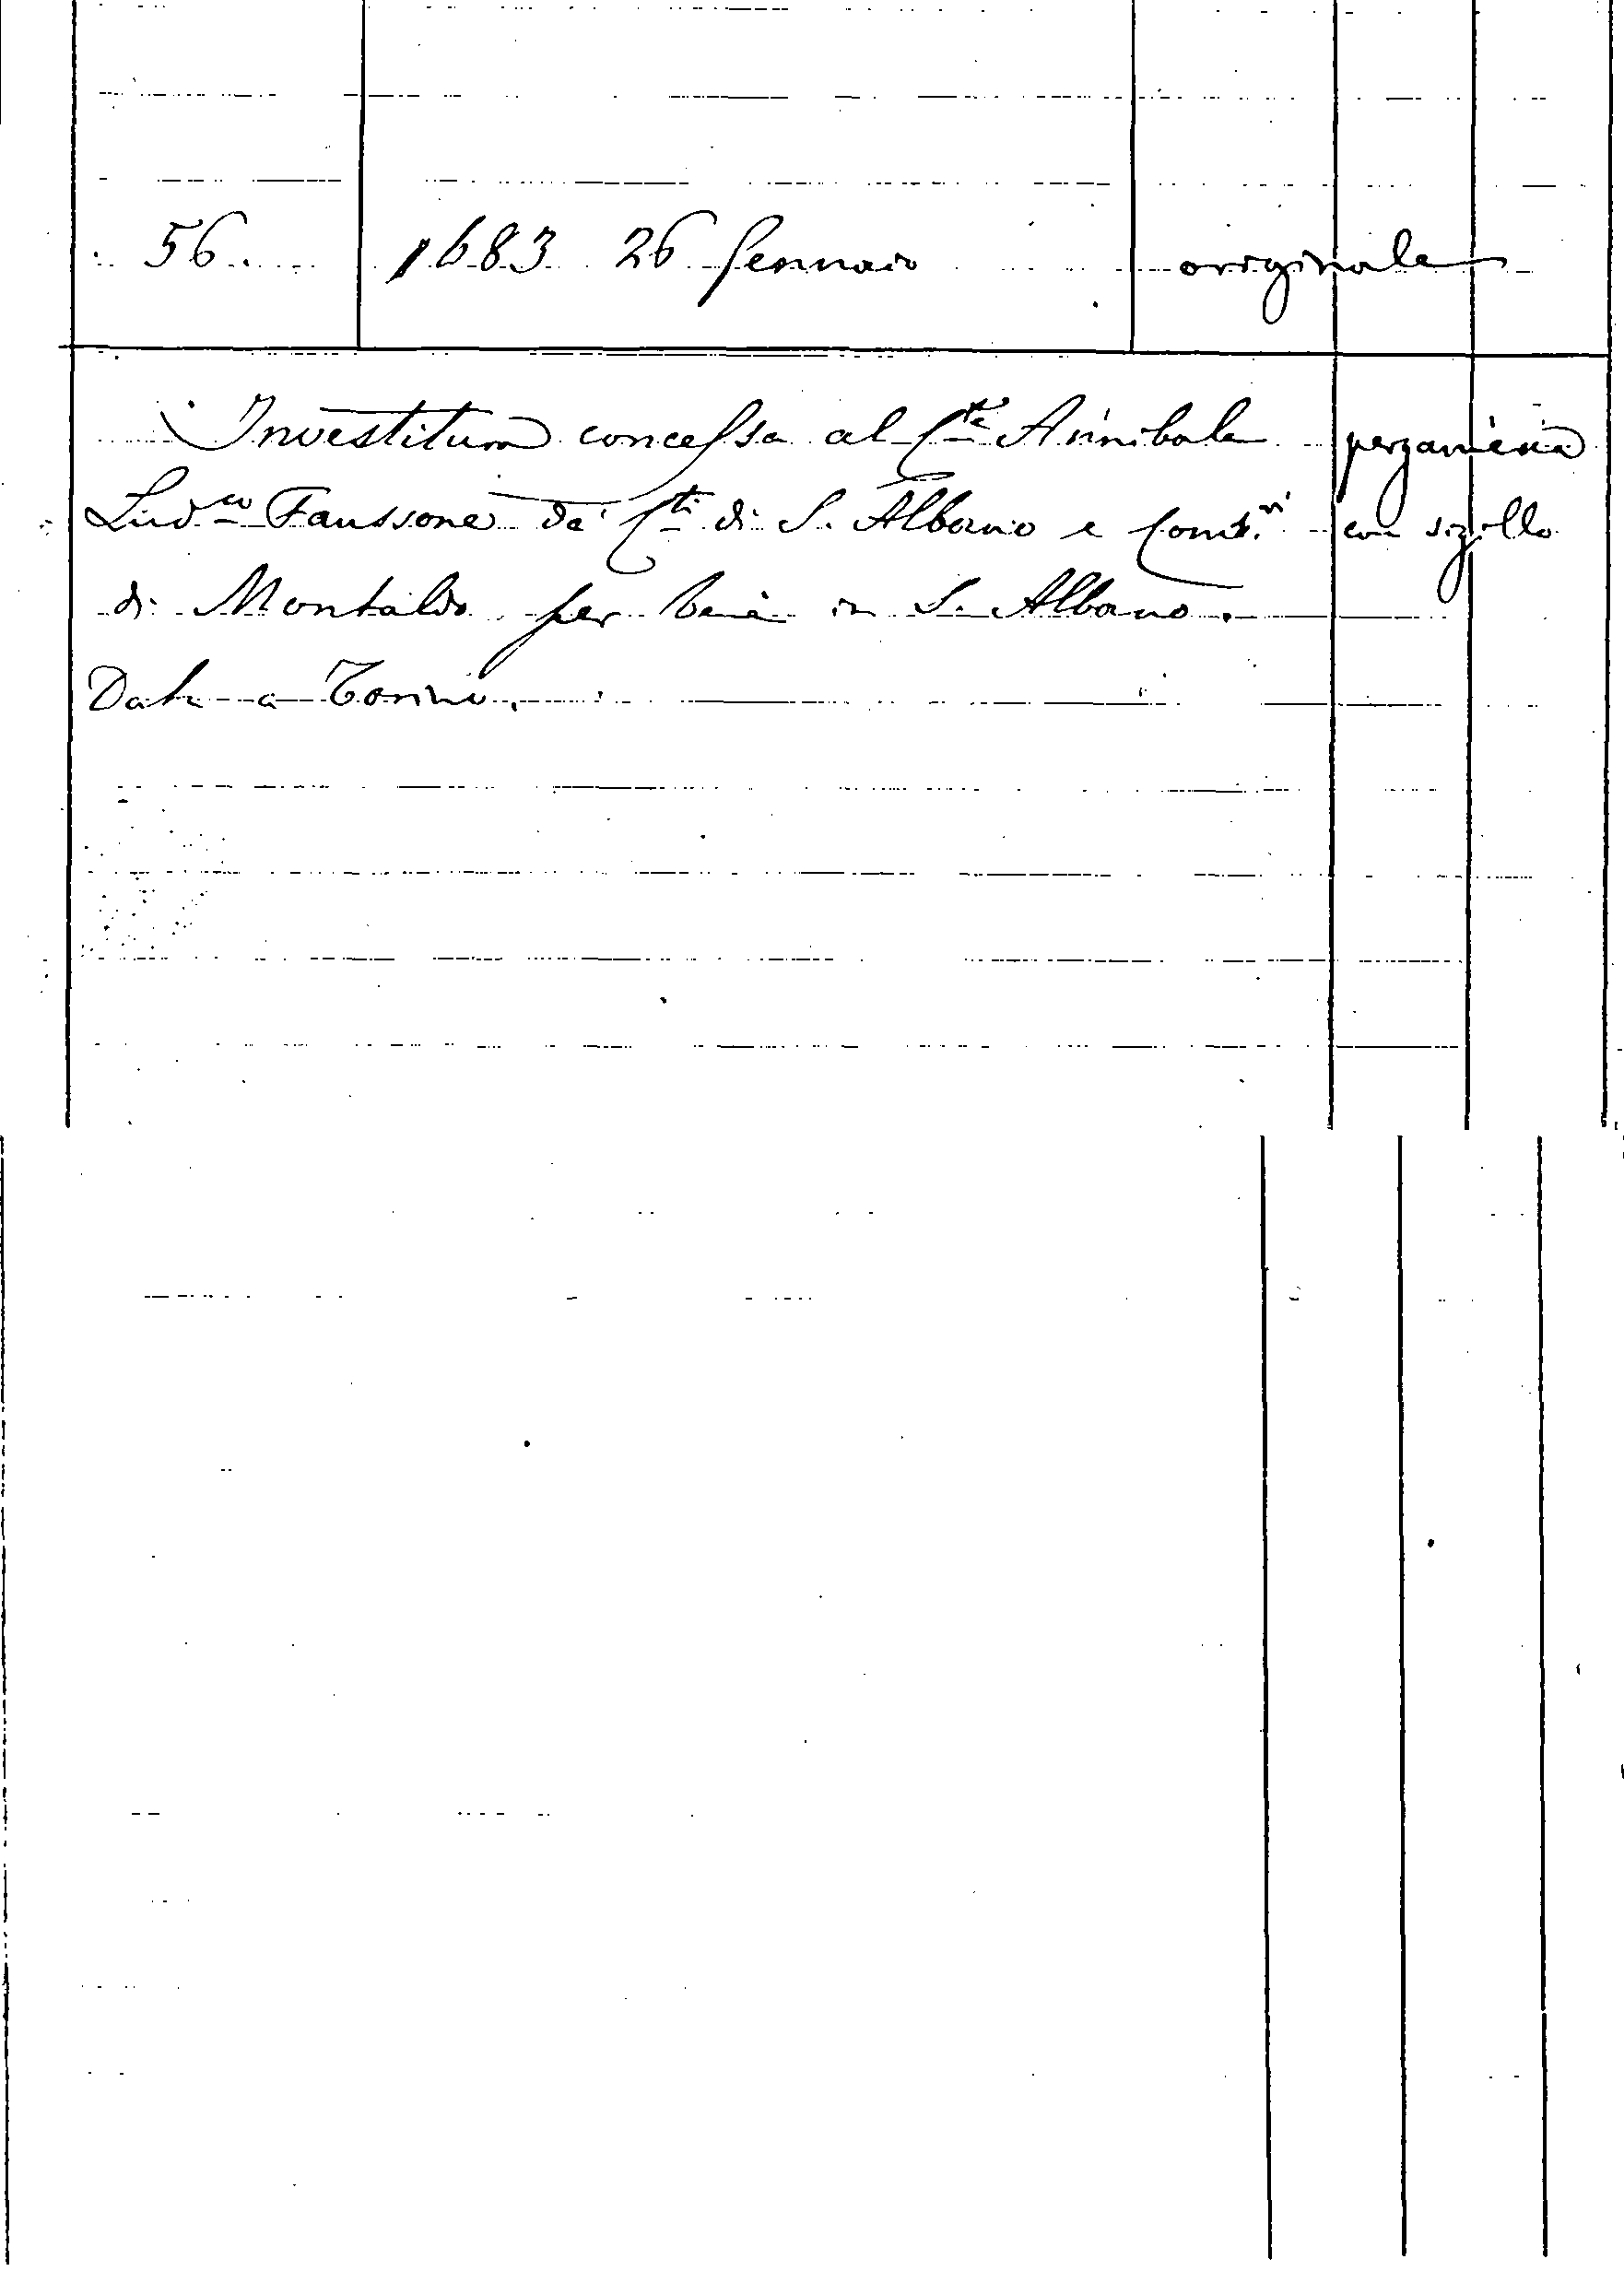 56. 1683 26 Gennaio originale
Investitura concessa al Cte Annibale pergamena
Ludco Faussone de' Cti di S. Albano e Cons.ri con sigillo
di Montaldo per beni in S. Albano.
Data a Torino.